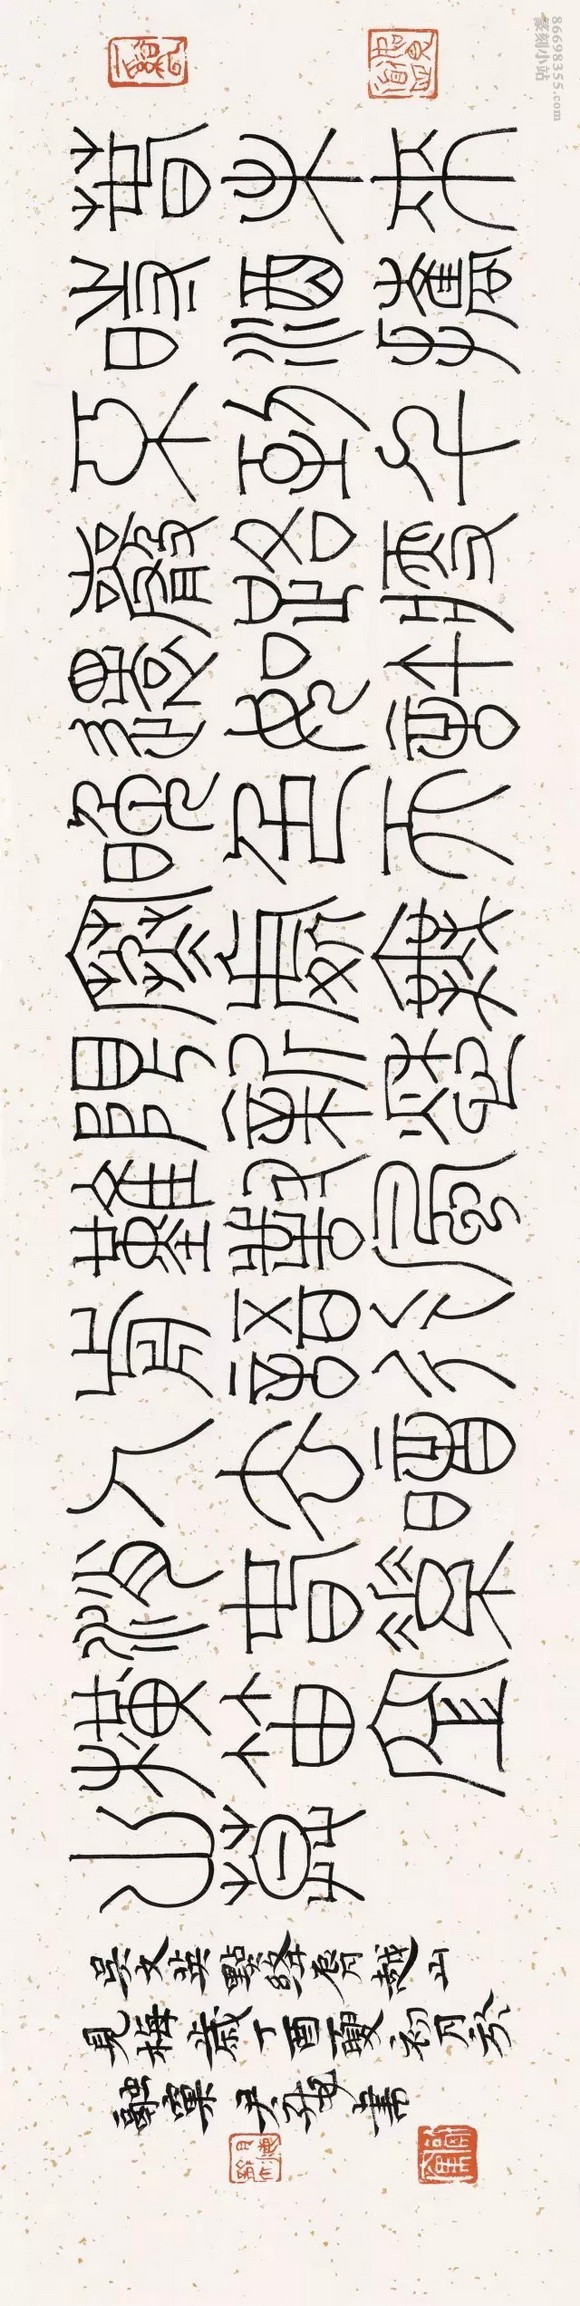 春未來
時酒攜
不到千
巖路瘦
還如許
晚色天
寒處無
限新愁
難對風
前語行
人去暗
消春素
橫笛空
山暮
吳文英點絳唇越山
見梅歲丁酉夏初月於
尹海龍書
86698355.com
篆刻小站